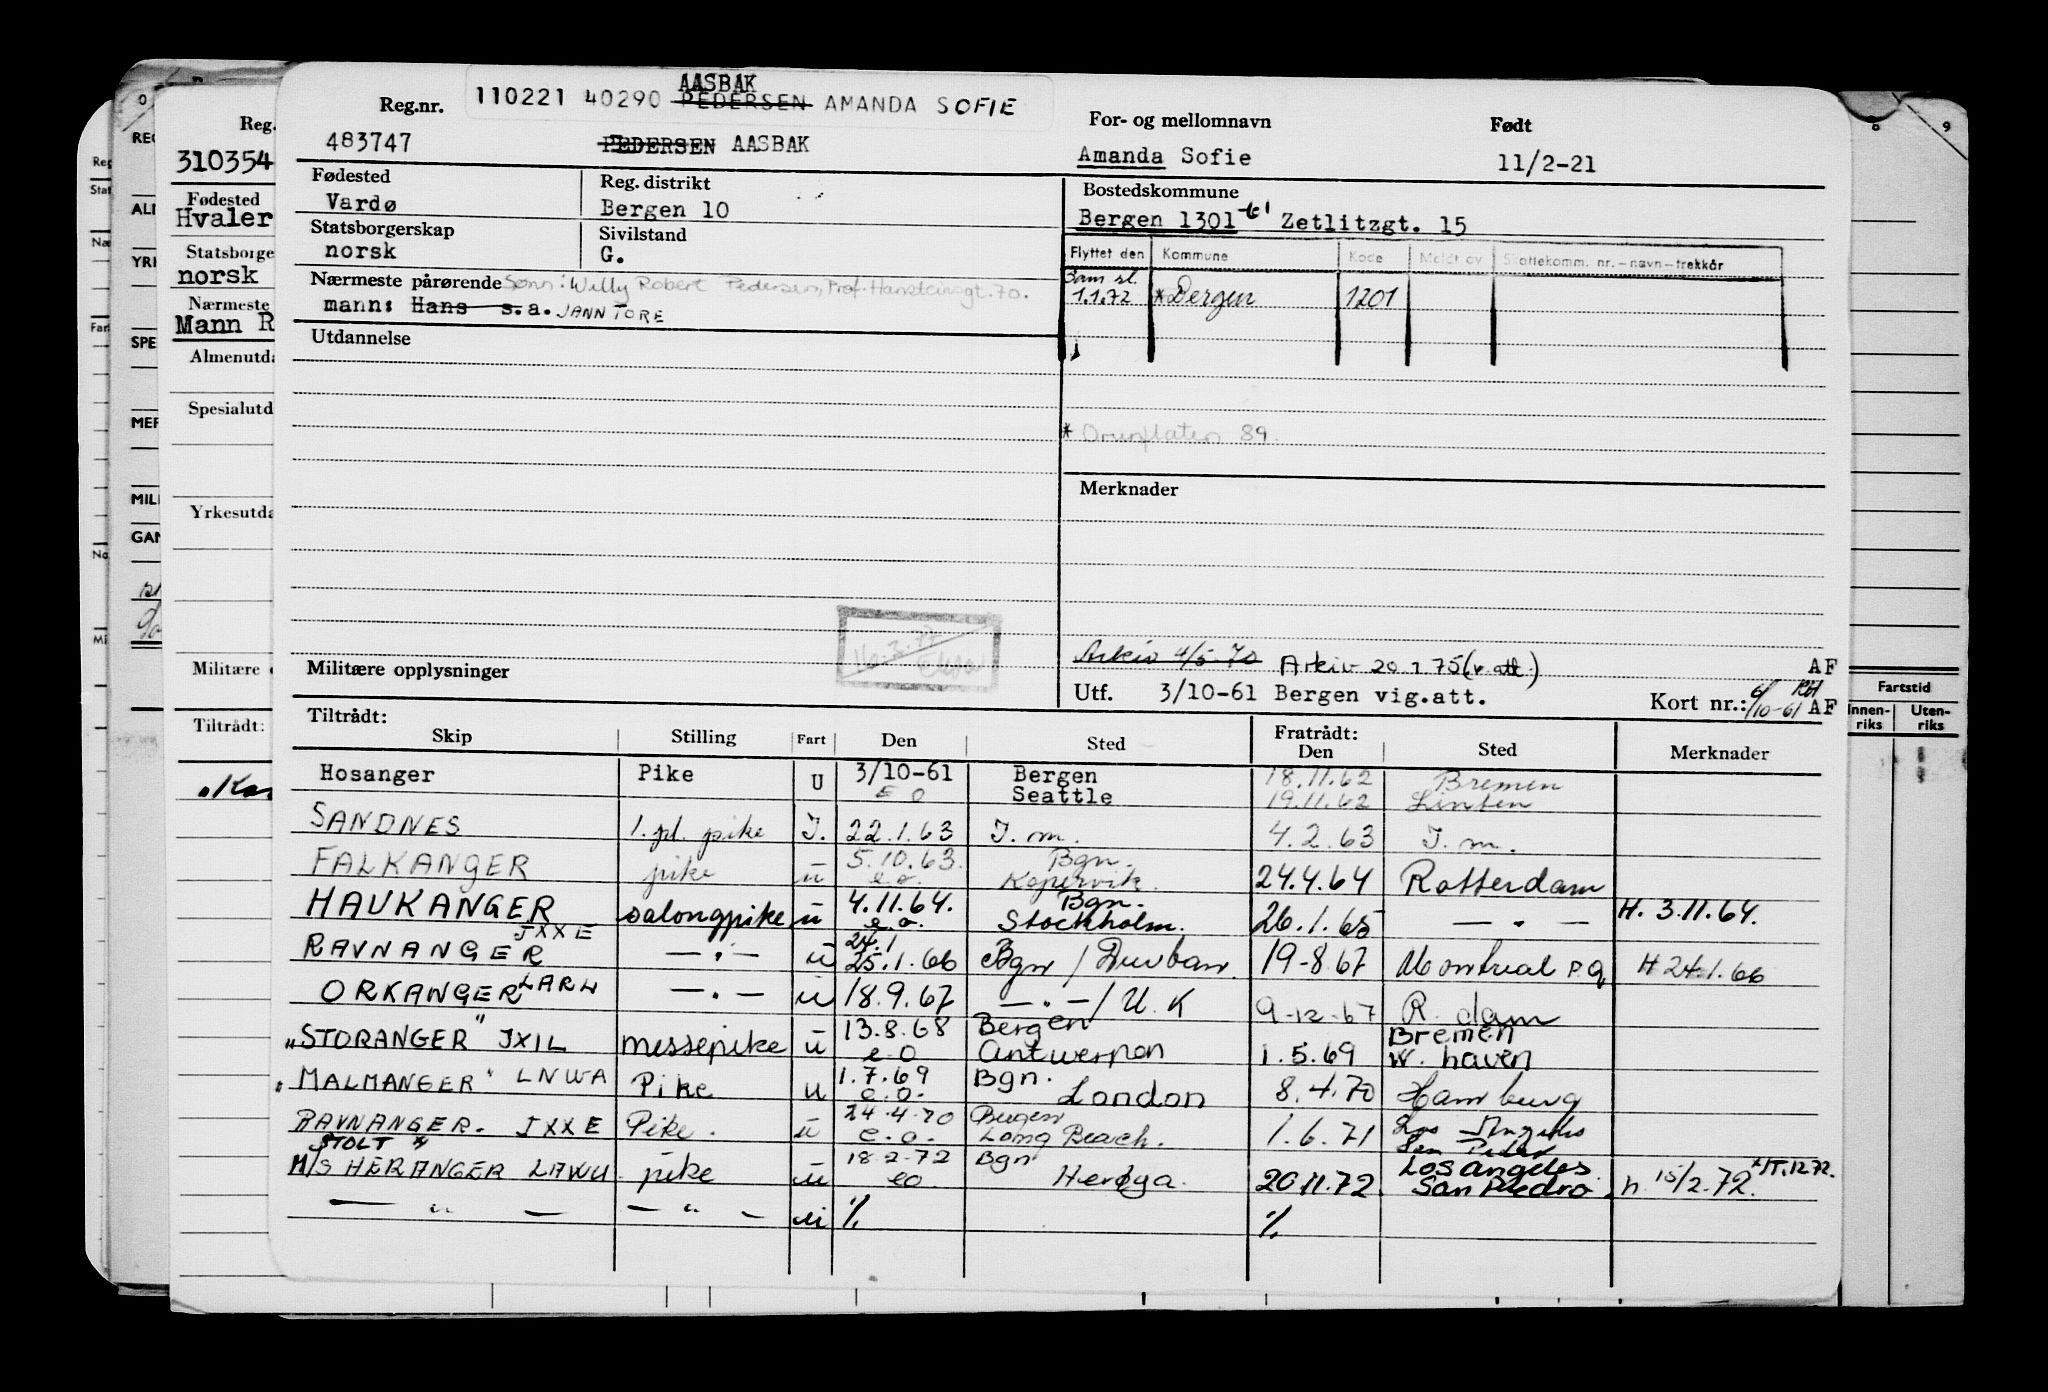 AASBAK
Reg.nr. 110221 40290 PEDERSEN AMANDA SOFIE
483747 PEDERSEN AASBAK
For- og mellomnavn Født
Amanda Sofie 11/2-21
Fødested Reg. distrikt
Vardø Bergen 10
Bostedskommune
Bergen 1301 Zetlitzgt. 15
Statsborgerskap Sivilstand
norsk G.
Flyttet den Kommune Kode Meldt av Skattekomm. nr.-navn-trekkår
1.1.72 * Bergen 1201
Nærmeste pårørende Sønn: Willy Robert Pedersen, Prof. Hansteinsgt. 70.
mann: Hans s.a. JANN TORE
Utdannelse
* 89.
Merknader
16.3.77
Militære opplysninger
Arkiv 4/5-70 Arkiv 20.1.75 (v. att.) AF
Utf. 3/10-61 Bergen vig.att. Kort nr.: 6/10-61 AF
Tiltrådt: Fratrådt:
Skip Stilling Fart Den Sted Den Sted Merknader
Hosanger Pike U 3/10-61 Bergen 18.11.62 Bremen
E O Seattle 19.11.62
SANDNES 1. pl. pike I. 22.1.63 I. m. 4.2.63 I. m.
FALKANGER pike u 5.10.63. Bgn.
e.o. Kopervik. 24.4.64 Rotterdam
HAUKANGER salongpike u 4.11.64. Bgn. H. 3.11.64.
e.o. Stockholm. 26.1.65 — " —
RAVNANGER JXXE — " — u 24.1
25.1.66 Bgn / Durban. 19-8.67 Montreal P.Q. H 24.1.66
ORKANGER LARW — " — u 18.9.67 — " — / U.K 9-12-67 R.dam
"STORANGER" JXIL messepike u 13.8.68 Bergen Bremen
e o Antwerpen 1.5.69 W. haven
"MALMANGER" LNWA Pike u 1.7.69 Bgn.
e.o. London 8.4.70 Hamburg
RAVNANGER. JXXE Pike. u 24.4.70 Bergen
e.o. Long Beach. 1.6.71 Los Angeles
San Pedro
STOLT
M/S HERANGER LAWU pike u 18.2.72 Bgn Los Angeles
eo Herøya. 20.11.72. San Pedro. h. 15/2.72.
— " — — " — ui % %
Reg.
310354
Fødested
Hvaler
Statsborge
norsk
Nærmeste
Mann R
Almenutda
Spesialutd
Yrkesutda
Militære
Tiltrådt:
REG
YRK
SPE
MER
MILI
GAN
Fartstid
Innen-riks Uten-riks
8 9